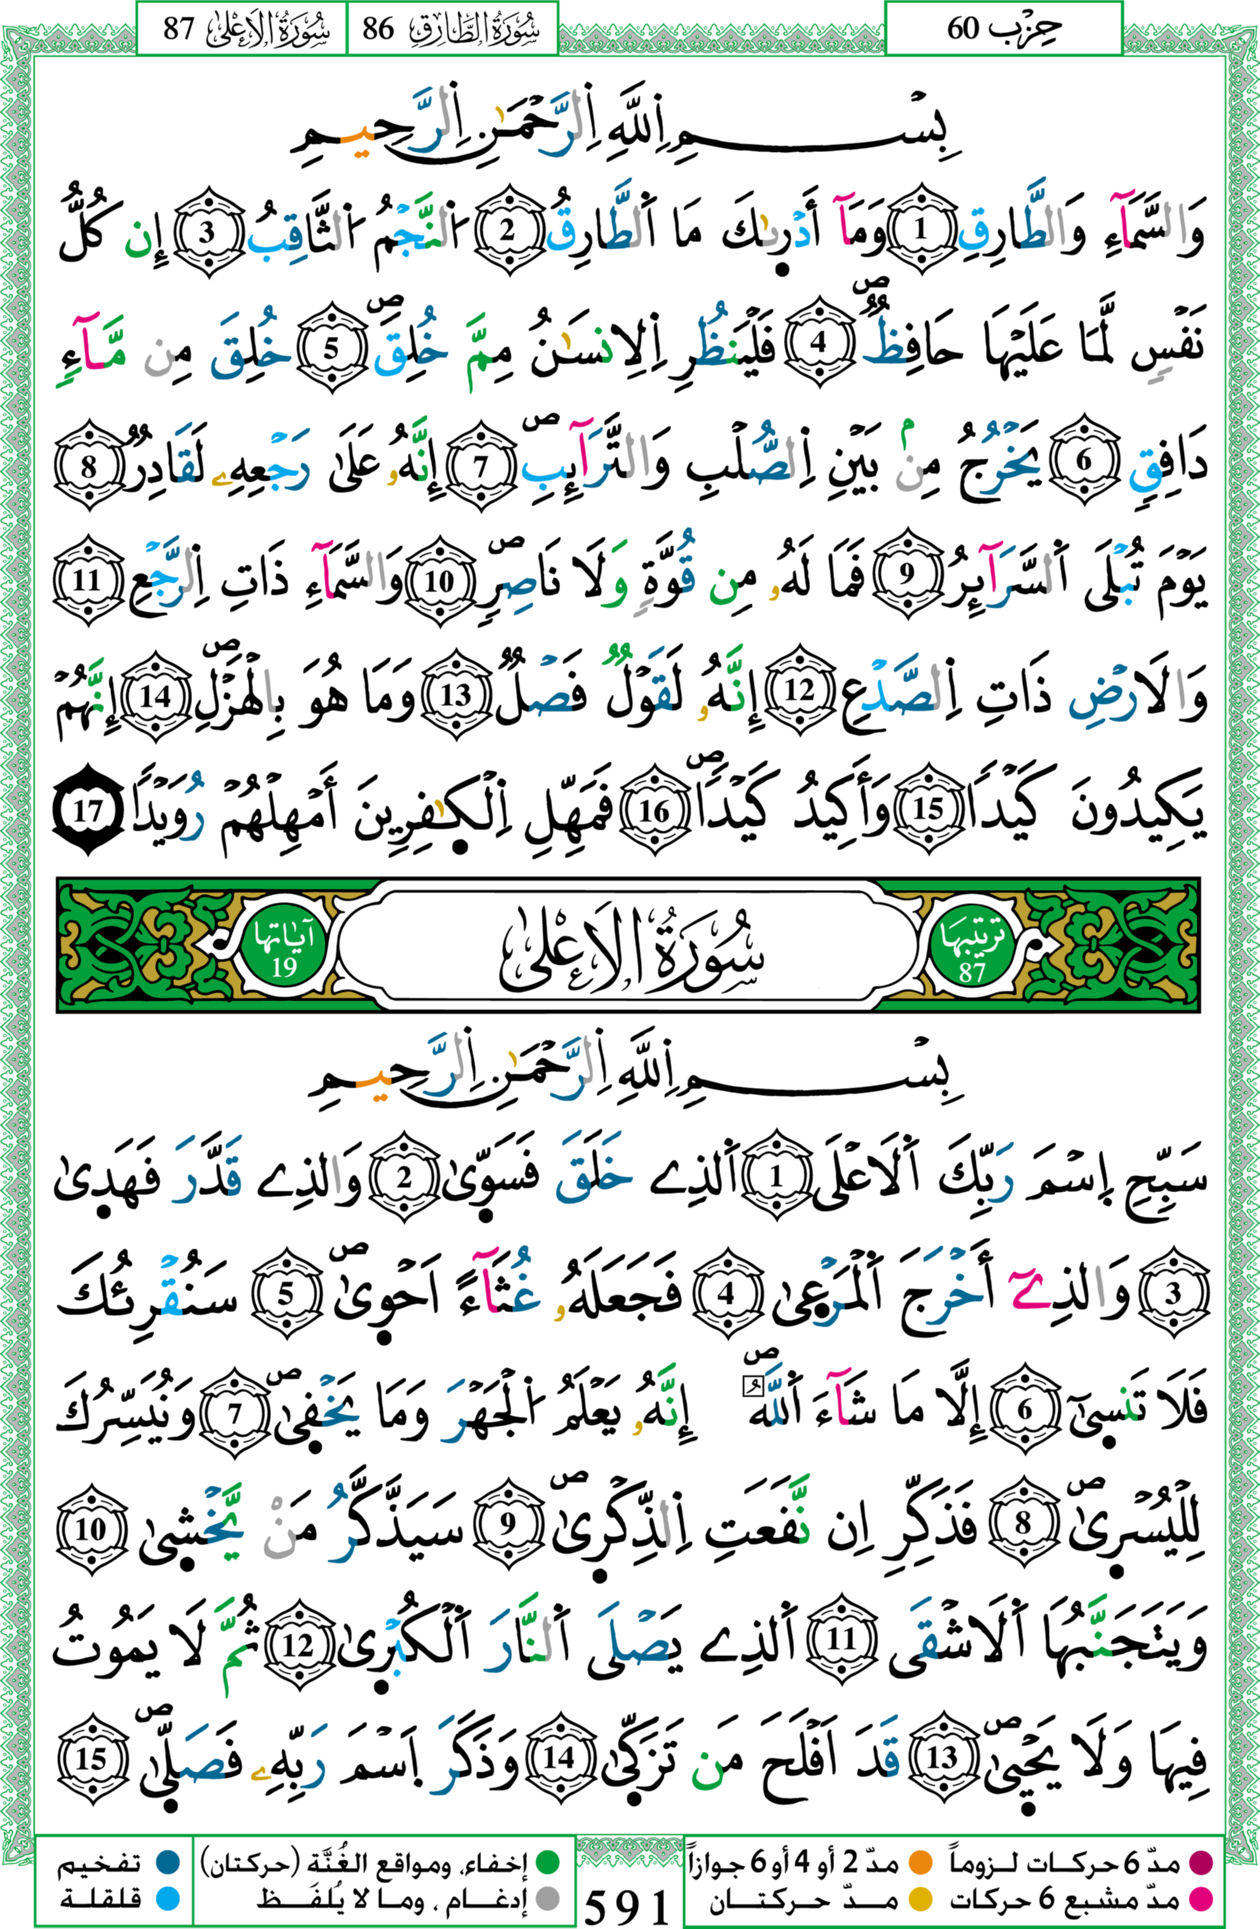 حِزْب 60
سُورَةُ الطَّارِقِ 86
سُورَةُ الْاَعْلىٰ 87
بِسْمِ اِللَّهِ اِلرَّحْمَٰنِ اِلرَّحِيمِ
وَالسَّمَآءِ وَالطَّارِقِ 1 وَمَآ أَدْرٜىٰكَ مَا اَلطَّارِقُ 2 اُلنَّجْمُ اُلثَّاقِبُ 3 إِن كُلُّ
نَفْسٖ لَّمَا عَلَيْهَا حَافِظٞۖ 4 فَلْيَنظُرِ اِلِانسَٰنُ مِمَّ خُلِقَۖ 5 خُلِقَ مِن مَّآءٖ
دَافِقٖ 6 يَخْرُجُ مِنۢ بَيْنِ اِلصُّلْبِ وَالتَّرَآئِبِۖ 7 إِنَّهُۥ عَلَىٰ رَجْعِهِۦ لَقَادِرٞ 8
يَوْمَ تُبْلَى اَلسَّرَآئِرُ 9 فَمَا لَهُۥ مِن قُوَّةٖ وَلَا نَاصِرٖۖ 10 وَالسَّمَآءِ ذَاتِ اِلرَّجْعِ 11
وَالَارْضِ ذَاتِ اِلصَّدْعِ 12 إِنَّهُۥ لَقَوْلٞ فَصْلٞ 13 وَمَا هُوَ بِالْهَزْلِۖ 14 إِنَّهُمْ
يَكِيدُونَ كَيْدٗا 15 وَأَكِيدُ كَيْدٗاۖ 16 فَمَهِّلِ اِلْكٰٜفِرِينَ أَمْهِلْهُمْ رُوَيْدَاۢ 17
تَرتيبُهَا 87
سُورَةُ الْاَعْلىٰ
آيَاتهَا 19
بِسْمِ اِللَّهِ اِلرَّحْمَٰنِ اِلرَّحِيمِ
سَبِّحِ اِسْمَ رَبِّكَ اَلَاعْلَى 1 اَلذِے خَلَقَ فَسَوّٜىٰ 2 وَالذِے قَدَّرَ فَهَدٜىٰ
3 وَالذِےٓ أَخْرَجَ اَلْمَرْعٜىٰ 4 فَجَعَلَهُۥ غُثَآءً اَحْوٜىٰۖ 5 سَنُقْرِئُكَ
فَلَا تَنسٜىٰٓ 6 إِلَّا مَا شَآءَ اَللَّهُۖ إِنَّهُۥ يَعْلَمُ اُلْجَهْرَ وَمَا يَخْفٜىٰۖ 7 وَنُيَسِّرُكَ
لِلْيُسْرٜىٰۖ 8 فَذَكِّرِ اِن نَّفَعَتِ اِلذِّكْرٜىٰۖ 9 سَيَذَّكَّرُ مَنْ يَّخْشٜىٰ 10
وَيَتَجَنَّبُهَا اَلَاشْقَى 11 اَلذِے يَصْلَى اَلنَّارَ اَلْكُبْرٜىٰ 12 ثُمَّ لَا يَمُوتُ
فِيهَا وَلَا يَحْيٜىٰۖ 13 قَدَ اَفْلَحَ مَن تَزَكّٜىٰ 14 وَذَكَرَ اَسْمَ رَبِّهِۦ فَصَلّٜىٰۖ 15
مدّ 6 حركات لـزوماً مدّ 2 أو 4 أو 6 جوازاً
مدّ مشبع 6 حركات مـدّ حـركتـان
591
إخفاء، ومواقع الغُنَّة (حركتان) تفخيم
إدغـام ، ومـا لا يُلفَـظ قلقلة